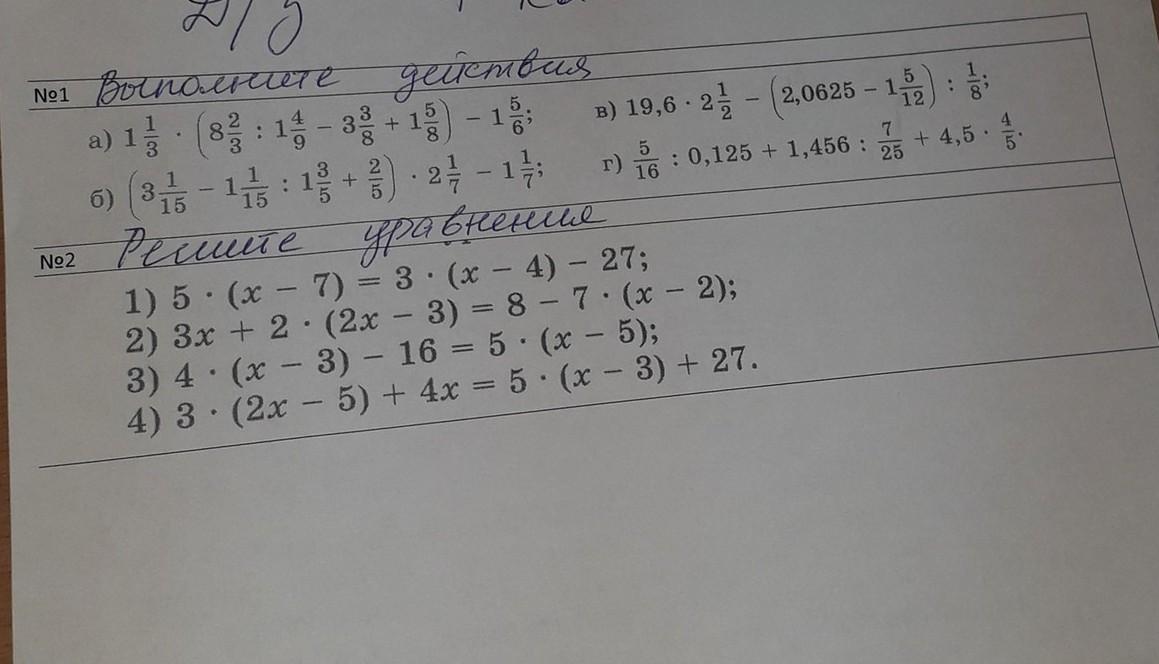 Д/з
№1 Выполните действия
а) 1 1/3 · (8 2/3 : 1 4/9 − 3 3/8 + 1 5/8) − 1 5/6;
в) 19,6 · 2 1/2 − (2,0625 − 1 5/12) : 1/8;
б) (3 1/15 − 1 1/15 : 1 3/5 + 2/5) · 2 1/7 − 1 1/7;
г) 5/16 : 0,125 + 1,456 : 7/25 + 4,5 · 4/5.
№2 Решите уравнения
1) 5 · (x − 7) = 3 · (x − 4) − 27;
2) 3x + 2 · (2x − 3) = 8 − 7 · (x − 2);
3) 4 · (x − 3) − 16 = 5 · (x − 5);
4) 3 · (2x − 5) + 4x = 5 · (x − 3) + 27.